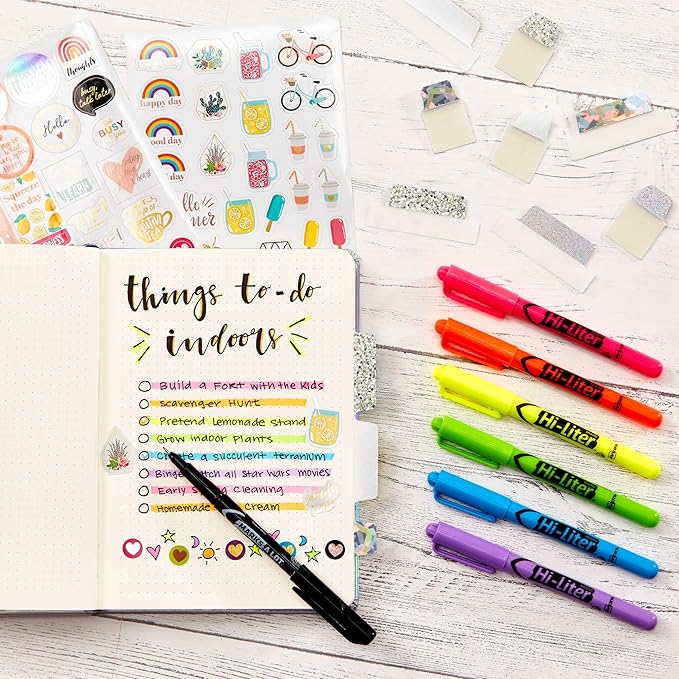 thoughts
busy talk later
Hello
BUSY
happy day
good day
Squeeze the day
LEARN
things to-do
indoors
Build a Fort with the Kids
Scavenger Hunt
Pretend Lemonade Stand
Grow indoor Plants
Create a succulent terranium
Binge all Star Wars movies
Early Cleaning
Homemade Cream
MARKS A LOT
Hi-Liter
Hi-Liter
Hi-Liter
Hi-Liter
Hi-Liter
Hi-Liter